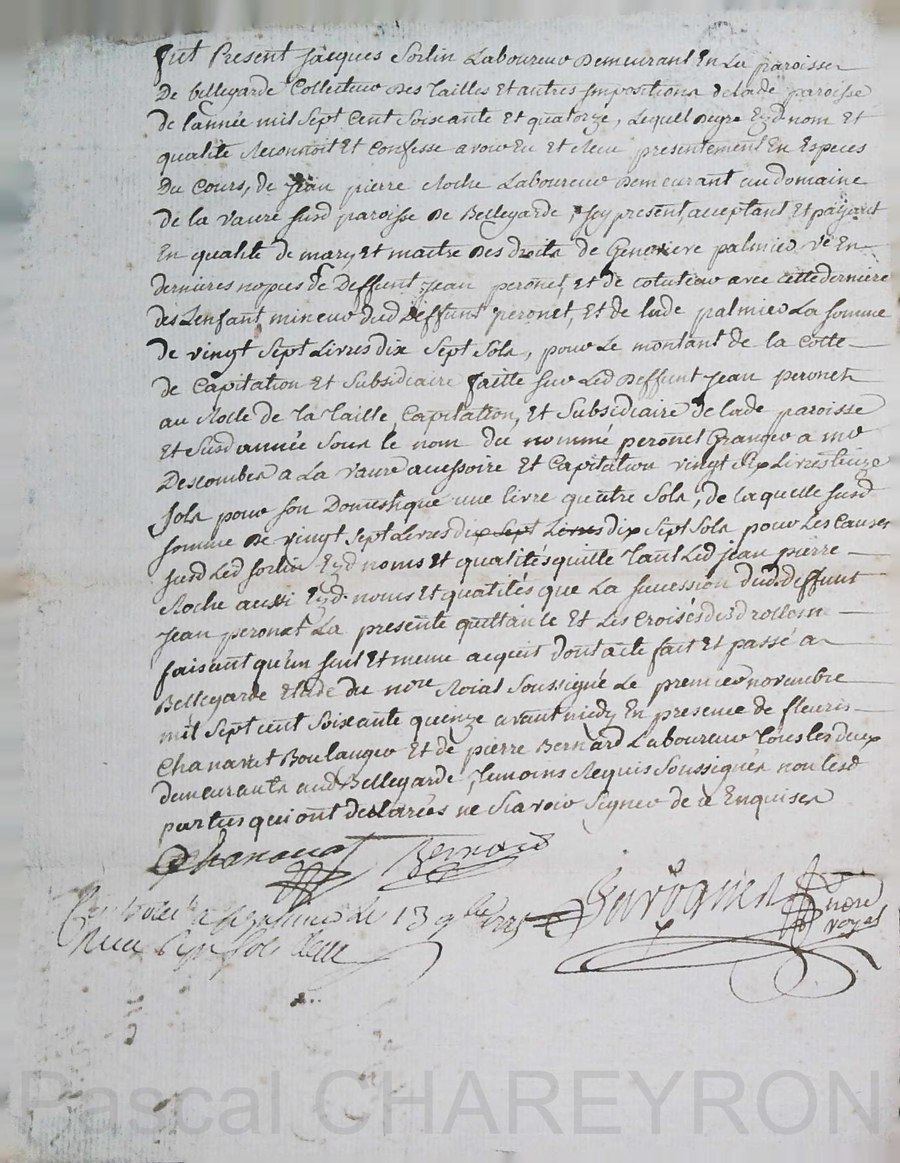 fut Present Jacques Sorlin Laboureur Demeurant En La paroisse
De bellegarde Collecteur Des Tailles Et autres Impositions de lade paroisse
de l'année mil Sept Cent Soixante Et quatorze, Lequel Degre Esd nom Et
qualité Reconnoit Et Confesse avoir Eu Et Receu presentement En Especes
Du Cours, de Jean pierre Roche Laboureur Demeurant au domaine
De la vaure susd paroisse de Bellegarde, Icy present, acceptant Et payant
En qualité de mary Et maitre Des droits de Genevieve palmier ve En
dernieres nopces de Deffunt Jean peronet, Et de cotuteur avec cette derniere
des Lenfant mineur dud Deffunt peronet, Et de lade palmier La somme
De vingt Sept Livres dix Sept Sols, pour Le montant de la Cotte
de Capitation Et Subsidiaire faitte sur Led Deffunt Jean peronet
au Rolle de La Taille, Capitation, Et Subsidiaire de lade paroisse
Et Susd année Sous le nom du nommé peronet Granger a mr
Descombes a La vaure accessoire Et Capitation vingt six Livres treize
Sols pour Son Domestique une livre quatre Sols, de laquelle susd
somme De vingt Sept Livres dix Sept Livres dix Sept Sols pour Les Causes
susd Led sorlin Esd noms Et qualités quitte Tant Led jean pierre
Roche aussi Esd noms Et qualités que La succession dud deffunt
Jean peronet La presente quittance Et Les Croisés desd rolles
faisant qu'un seul Et meme acquit dont acte fait Et passé a
Bellegarde Etude du nore Roial Soussigné Le premier novembre
mil Sept cent Soixante quinze avant midy En presence de fleuris
Chanavat Boulanger Et de pierre Bernard Laboureur tous Les deux
demeurants aud Bellegarde, Temoins Requis Soussignés non lesd
parties qui ont declarées ne Sçavoir Signer de ce Enquises
Chanavat Bernard
nore
royal
le 13 9bre 1775
Reçu Sols
Pascal CHAREYRON